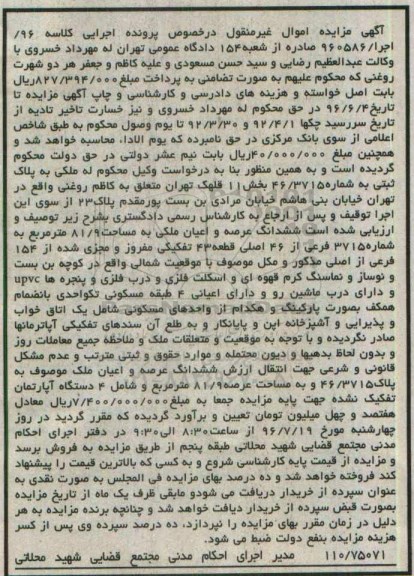 آگهی مزایده اموال غیرمنقول درخصوص پرونده اجرایی کلاسه ۹۶/
اجرا/۹۶۰۵۸۶ صادره از شعبه۱۵۴ دادگاه عمومی تهران له مهرداد خسروی با
وکالت عبدالعظیم رضایی و سید حسن مسعودی و علیه کاظم و جعفر هر دو شهرت
روغنی که محکوم علیهم به صورت تضامنی به پرداخت مبلغ۸۲۷/۳۹۴/۰۰۰ریال
بابت اصل خواسته و هزینه های دادرسی و کارشناسی و چاپ آگهی مزایده تا
تاریخ۹۶/۶/۴ در حق محکوم له مهرداد خسروی و نیز خسارت تاخیر تادیه از
تاریخ سررسید چکها ۹۲/۴/۱ و ۹۲/۳/۳۰ تا یوم وصول محکوم به طبق شاخص
اعلامی از سوی بانک مرکزی در حق نامبرده که یوم الاداء محاسبه خواهد شد و
همچنین مبلغ ۴۰/۰۰۰/۰۰۰ریال بابت نیم عشر دولتی در حق دولت محکوم
گردیده است و به همین منظور بنا به درخواست وکیل محکوم له ملکی به پلاک
ثبتی به شماره۴۶/۳۷۱۵ بخش۱۱ قلهک تهران متعلق به کاظم روغنی واقع در
تهران خیابان بنی هاشم خیابان مرادی بن بست پورمقدم پلاک۲۳ از سوی این
اجرا توقیف و پس از ارجاع به کارشناس رسمی دادگستری بشرح زیر توصیف و
ارزیابی شده است ششدانگ عرصه و اعیان ملکی به مساحت۸۱/۹ مترمربع به
شماره۳۷۱۵ فرعی از ۴۶ اصلی قطعه۴۳ تفکیکی مفروز و مجزی شده از ۱۵۴
فرعی از اصلی مذکور و مکل موصوف با موقعیت شمالی واقع در کوچه بن بست
و نوساز و نماسنگ کرم قهوه ای و اسکلت فلزی و درب فلزی و پنجره ها upvc
و دارای درب ماشین رو و دارای اعیانی ۴ طبقه مسکونی تکواحدی بانضمام
همکف بصورت پارکینگ و هکدام از واحدهای مسکونی شامل یک اتاق خواب
و پذیرایی و آشپزخانه اپن و پایانکار و به طلع آن سندهای تفکیکی آپارتمانها
صادر نگردیده و با توجه به موقعیت و متعلقات ملک و ملاحظه جمیع معاملات روز
و بدون لحاظ بدهیها و دیون محتمله و موارد حقوق و ثبتی مترتب و عدم مشکل
قانونی و شرعی جهت انتقال ارزش ششدانگ عرصه و اعیان ملک موصوف به
پلاک۴۶/۳۷۱۵ و به مساحت عرصه۸۱/۹ مترمربع و شامل ۴ دستگاه آپارتمان
تفکیک نشده جهت پایه مزایده جمعا به مبلغ۷/۴۰۰/۰۰۰/۰۰۰ریال معادل
هفتصد و چهل میلیون تومان تعیین و برآورد گردیده که مقرر گردید در روز
چهارشنبه مورخ ۹۶/۷/۱۹ از ساعت۸:۳۰ الی۹:۳۰ در دفتر اجرای احکام
مدنی مجتمع قضایی شهید محلاتی طبقه پنجم از طریق مزایده به فروش برسد
و مزایده از قیمت پایه کارشناسی شروع و به کسی که بالاترین قیمت را پیشنهاد
کند فروخته خواهد شد و ده درصد بهای مزایده فی المجلس به صورت نقدی به
عنوان سپرده از خریدار دریافت می شودو مابقی ظرف یک ماه از تاریخ مزایده
بصورت قبض سپرده از خریدار دیافت خواهد شد و چنانچه برنده مزایده به هر
دلیل در زمان مقرر بهای مزایده را نپردازد، ده درصد سپرده وی پس از کسر
هزینه مزایده بنفع دولت ضبط می شود.
۱۱۰/۷۵۰۷۱ مدیر اجرای احکام مدنی مجتمع قضایی شهید محلاتی